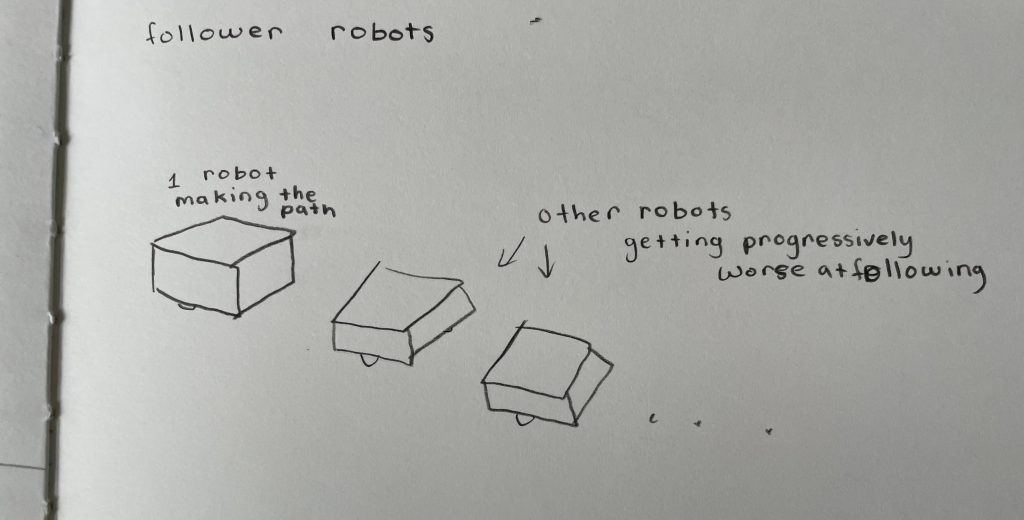 follower robots
1 robot
making the
path
other robots
getting progressively
worse at following